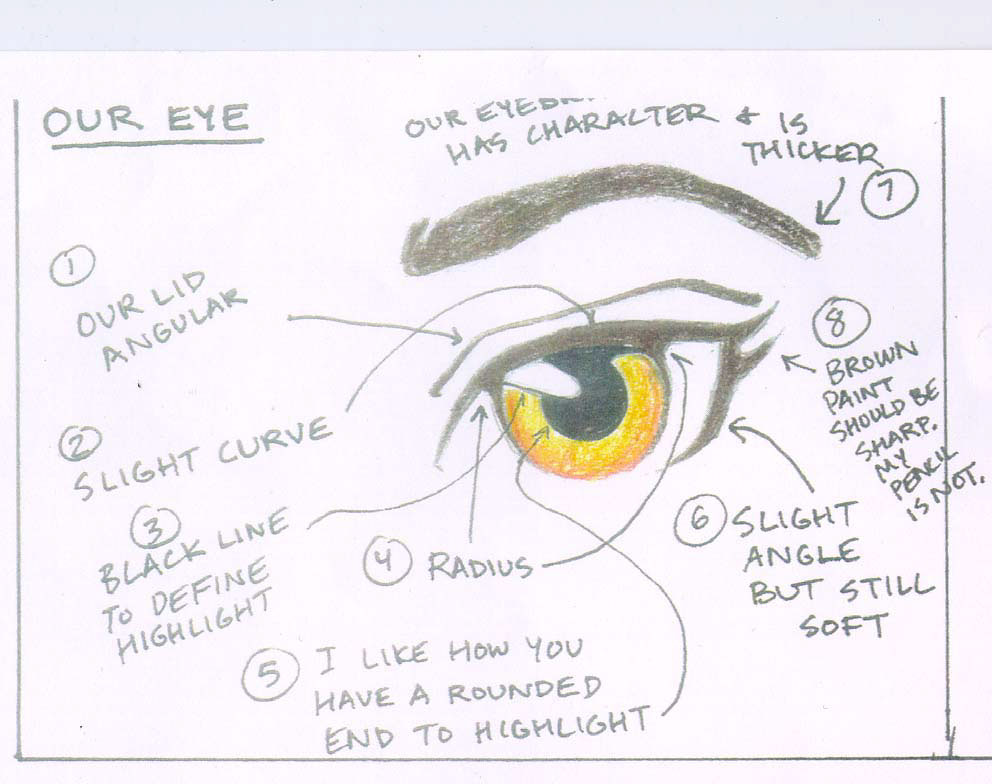 OUR EYE
OUR
HAS CHARACTER & IS
THICKER
7
1
OUR LID
ANGULAR
8
BROWN
PAINT
SHOULD BE
SHARP.
MY
PENCIL
IS NOT.
2
SLIGHT CURVE
3
BLACK LINE
TO DEFINE
HIGHLIGHT
4 RADIUS
6 SLIGHT
ANGLE
BUT STILL
SOFT
5 I LIKE HOW YOU
HAVE A ROUNDED
END TO HIGHLIGHT